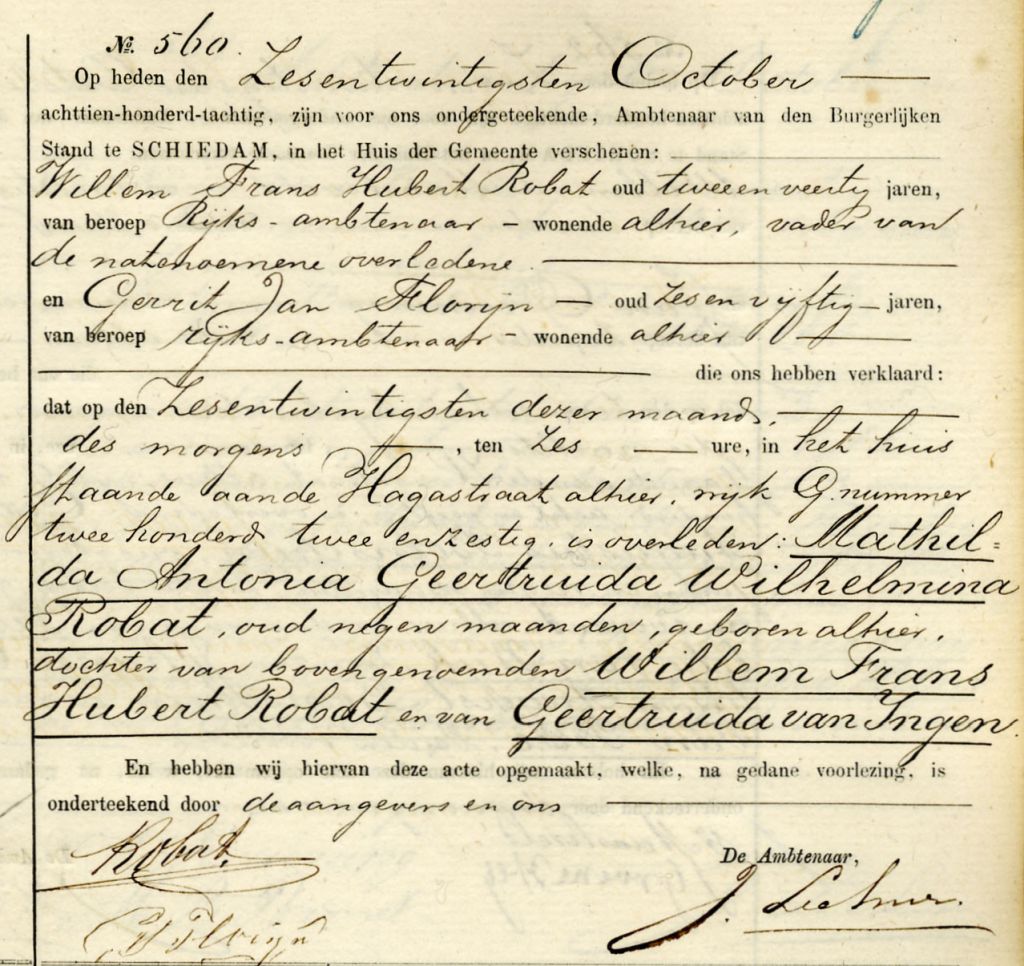 №. 560.
Op heden den Zesentwintigsten October
achttien-honderd-tachtig, zijn voor ons ondergeteekende, Ambtenaar van den Burgerlijken
Stand te SCHIEDAM, in het Huis der Gemeente verschenen:
Willem Frans Hubert Robat oud twee en veertig jaren,
van beroep Rijks-ambtenaar – wonende alhier, vader van
de natenoemene overledene
en Gerrit Jan Florijn – oud zes en vijftig – jaren,
van beroep rijks-ambtenaar – wonende alhier
die ons hebben verklaard:
dat op den Zesentwintigsten dezer maand,
des morgens , ten zes ure, in het huis
staande aande Hagastraat alhier, wijk G. nummer
twee honderd twee en zestig, is overleden: Mathil=
da Antonia Geertruida Wilhelmina
Robat, oud negen maanden, geboren alhier,
dochter van bovengenoemden Willem Frans
Hubert Robat en van Geertruida van Ingen.
En hebben wij hiervan deze acte opgemaakt, welke, na gedane voorlezing, is
onderteekend door de aangevers en ons
Robat.
De Ambtenaar,
GJ Florijn